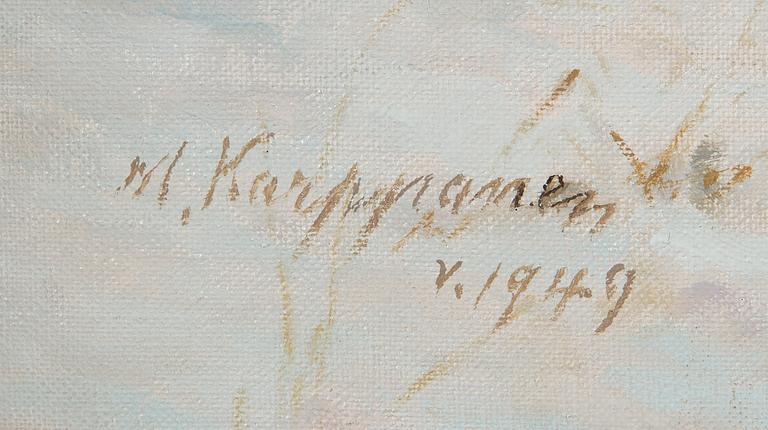 M. Karppanen
v. 1949